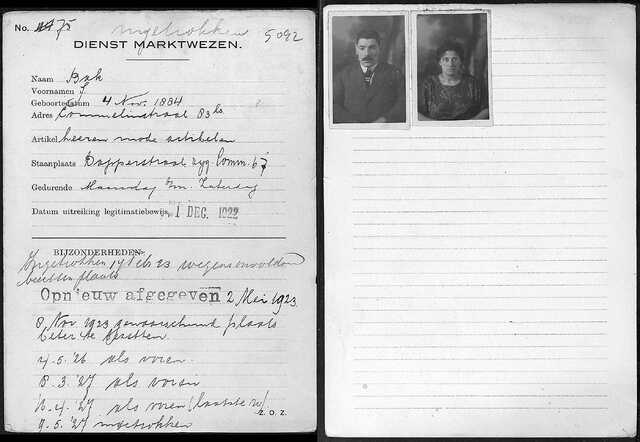 No. 75 ingetrokken 5092
DIENST MARKTWEZEN.
Naam Bak
Voornamen J.
Geboortedatum 4 Nov. 1884
Adres Commelinstraat 83 hs
Artikel heeren mode artikelen
Staanplaats Dapperstraat zyg. Comm. 67
Gedurende Maandag t/m. Zaterdag
Datum uitreiking legitimatiebewijs, 1 DEC. 1922
BIJZONDERHEDEN
Ingetrokken 17 Feb 23 wegens onvoldoen
bezetten plaats
Opnieuw afgegeven 2 Mei 1923.
8 Nov. 1923 gewaarschuwd plaats
beter te bezetten.
4.5.'26 als voren.
8.3.'27 als voren
11.4.'27 als voren! laatste w/
Z.O.Z.
9.5.'27 ingetrokken